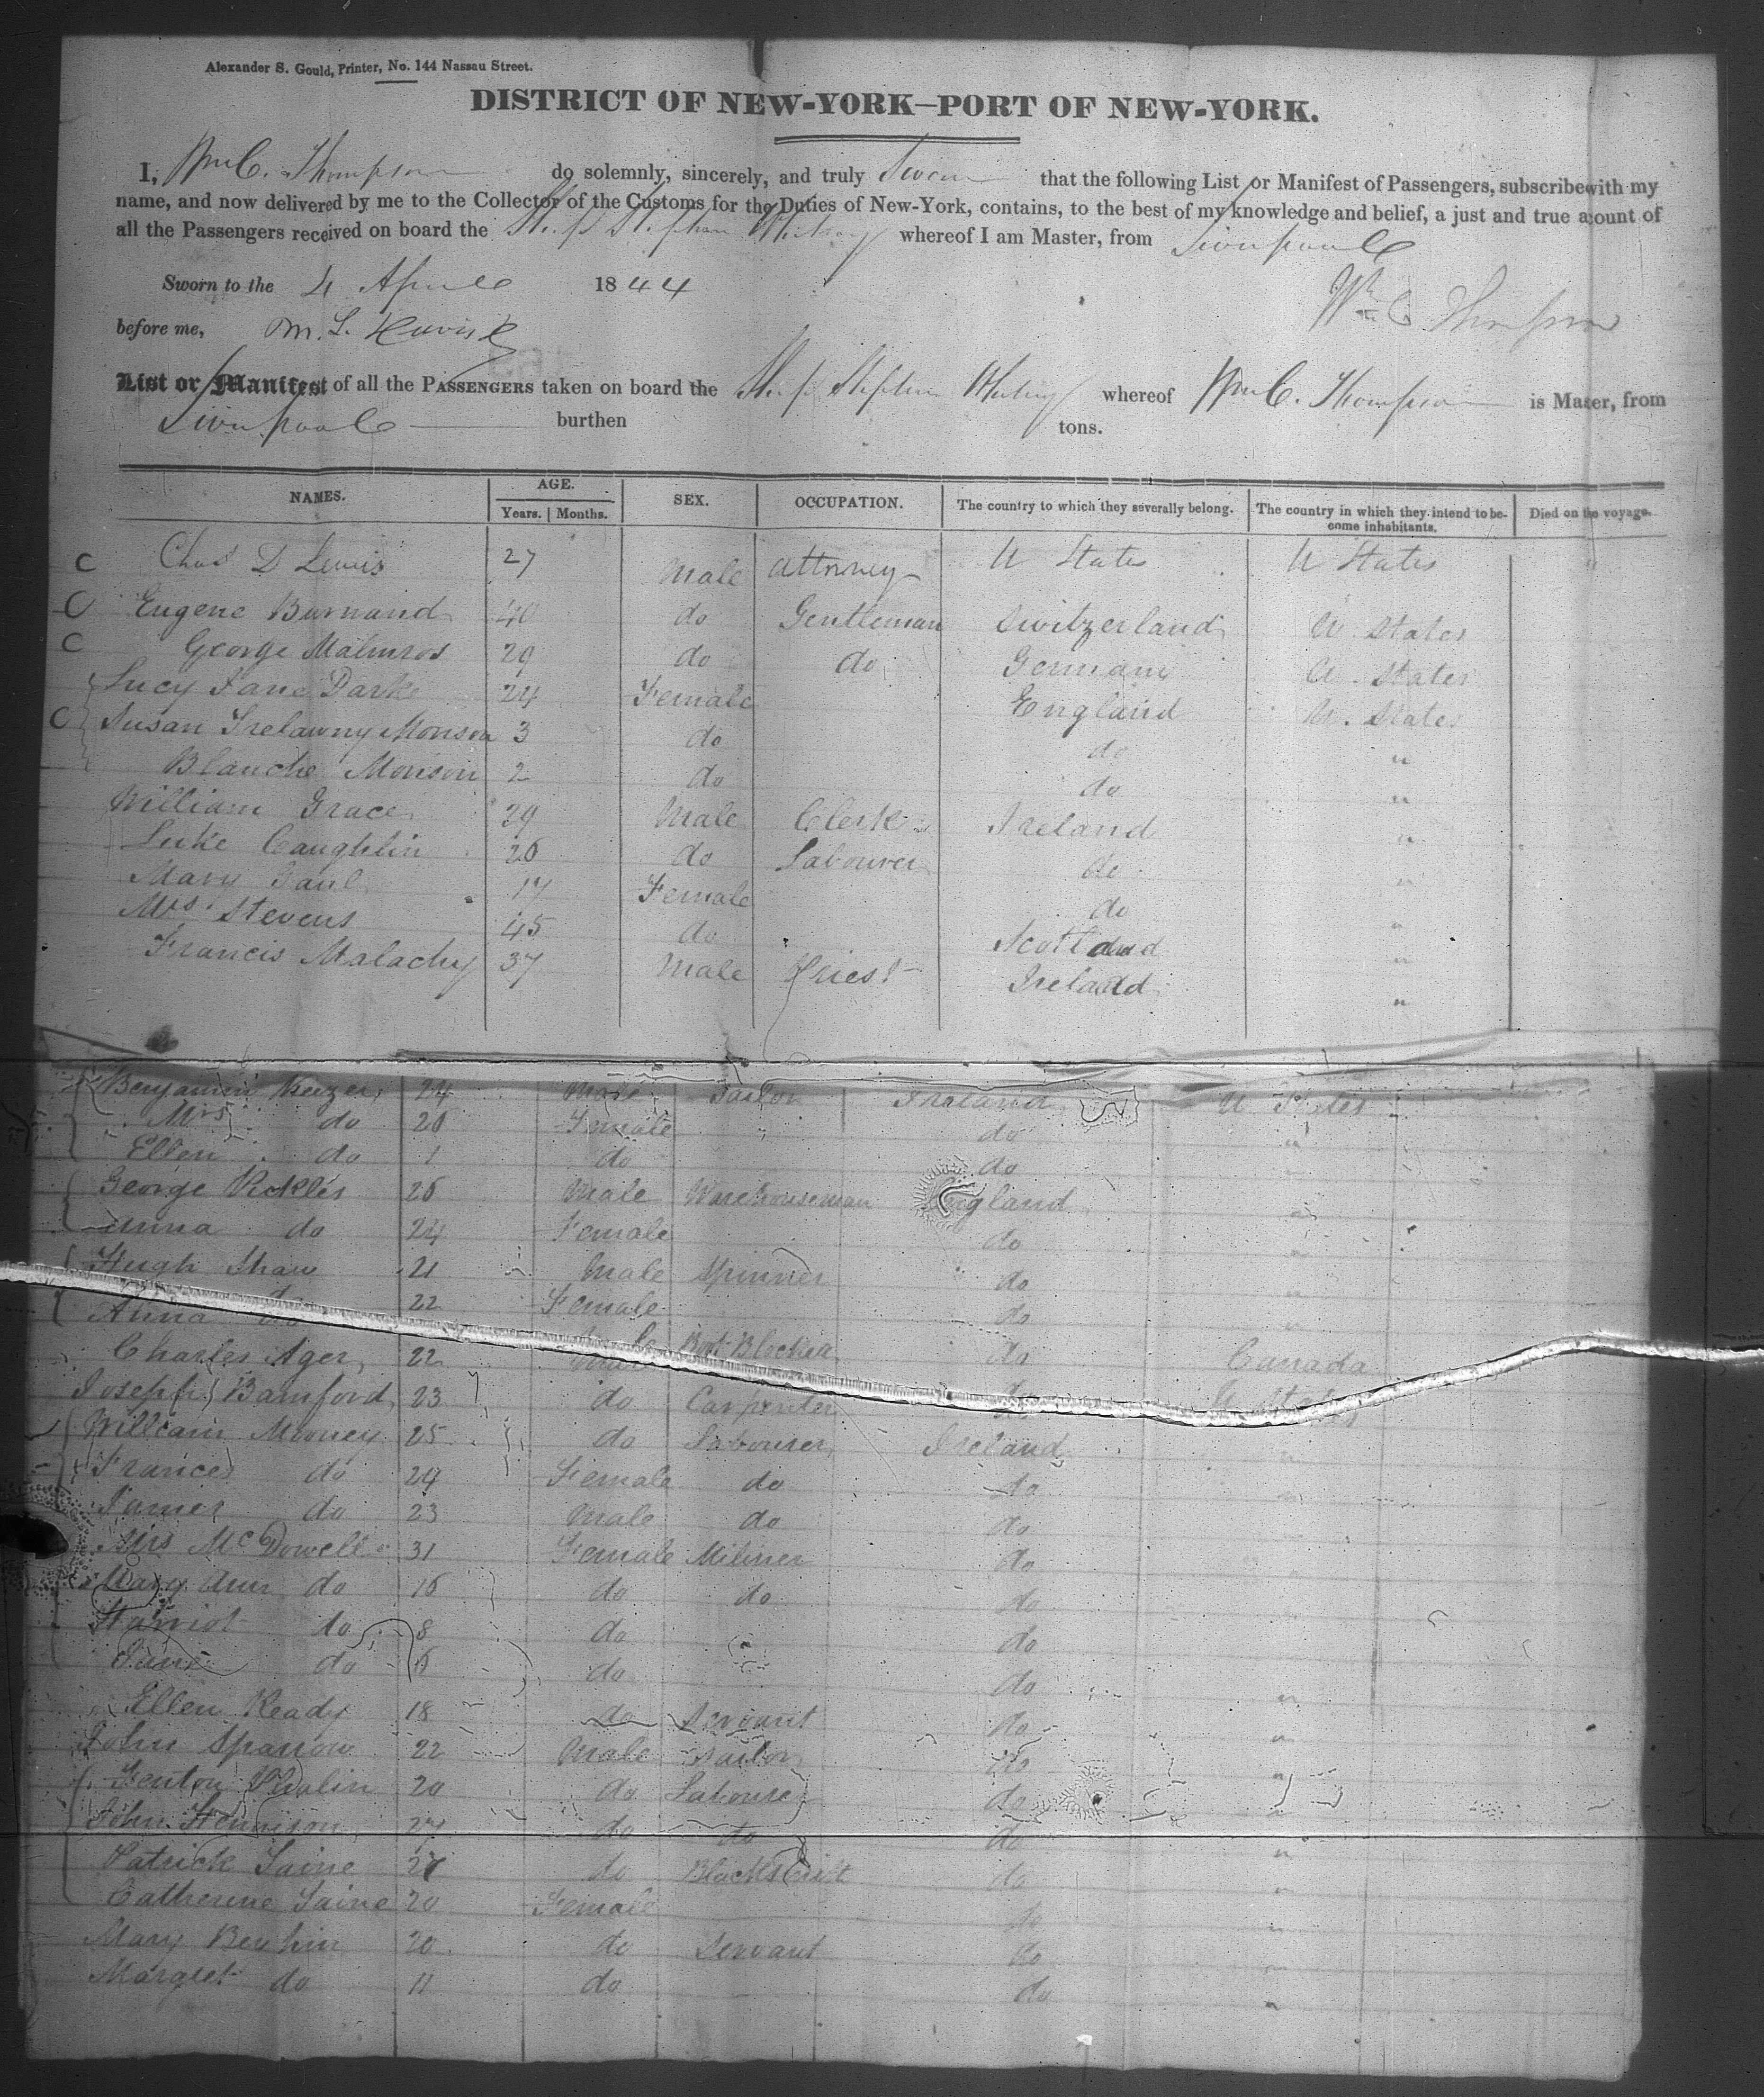 Alexander S. Gould, Printer, No. 144 Nassau Street.
DISTRICT OF NEW-YORK—PORT OF NEW-YORK.
I, Wm C. Thompson do solemnly, sincerely, and truly Swear that the following List or Manifest of Passengers, subscribe with my
name, and now delivered by me to the Collector of the Customs for the Duties of New-York, contains, to the best of my knowledge and belief, a just and true acount of
all the Passengers received on board the Ship Stephen Whitney whereof I am Master, from Liverpool
Sworn to the 4 April 1844
Wm C Thompson
before me,
List or Manifest of all the PASSENGERS taken on board the Ship Stephen Whitney whereof Wm C. Thompson is Mater, from
Liverpool burthen tons.
NAMES. AGE. SEX. OCCUPATION. The country to which they severally belong. The country in which they intend to be- Died on the voyage.
Years. Months. come inhabitants.
C Chas D Lewis 27 Male Attorney U States U States
C Eugene Burnand 40 do Gentleman Switzerland U. States
C George Malmros 29 do do Germany U. States
Lucy Jane Parke 24 Female England U. States
C Susan Trelawny Monson 3 do do "
Blanche Monson 2 do do "
William Grace 29 Male Clerk Ireland "
Luke Caughlin 26 do Labourer do "
Mary Gaul 17 Female do "
Mrs. Stevens 45 do Scotland "
Francis Malachy 37 Male Priest Ireland "
Benjamin Keizer 24 Male Tailor Ireland U States
Mrs do 26 Female do "
Ellen do 1 do do
George Pickles 26 Male Warehouseman England "
Anna do 24 Female do "
Hugh Shaw 21 Male Spinner do "
Anna do 22 Female do "
Charles Ager 22 Male do Canada
Joseph Bamford 23 do Carpenter do U States
William Mooney 25 do Labourer Ireland "
Frances do 29 Female do do "
James do 23 Male do do
Mrs McDowell 31 Female Miliner do
Mary Ann do 16 do do do
Harriot do 8 do do
Jane do 6 do do "
Ellen Ready 18 do Servant do "
John Sparrow 22 Male Tailor do "
Fenton 20 do Labourer do "
John Hennison 27 do do do "
Patrick Laine 27 do Blacksmith do "
Catherine Laine 20 Female do "
Mary 20 do Servant do "
Margret do 11 do do "